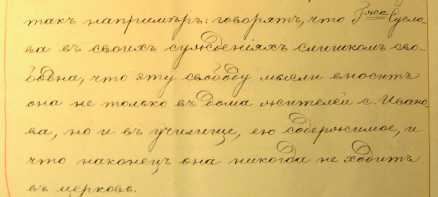 такъ напримѣръ: говорятъ, что Гжа Сусло-
ва въ своихъ сужденіяхъ слишкомъ сво-
бодна, что эту свободу мысли вноситъ
она не только въ дома жителей с. Ивано-
ва, но и въ училище, ею содержимое, и
что наконецъ она никогда не ходитъ
въ церковь.